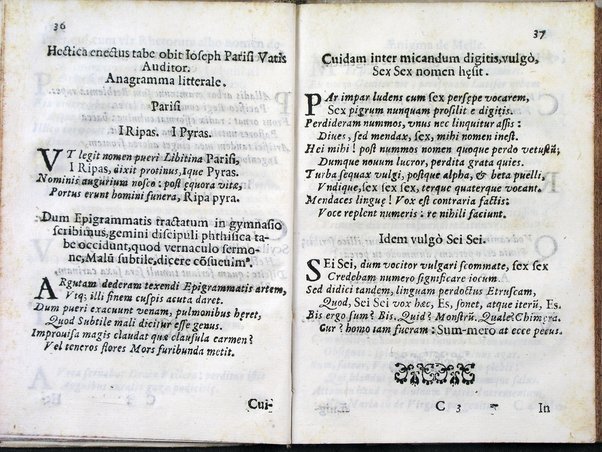 36
Hectica enectus tabe obit Ioseph Parisi Vatis
Auditor.
Anagramma litterale.
Parisi
I Ripas. I Pyras.
VT legit nomen pueri Libitina Parisi,
I Ripas, dixit protinus, Ique Pyras.
Nominis augurium nosco: post equora vitæ,
Portus erunt homini funera, Ripa pyra.
Dum Epigrammatis tractatum in gymnasio
scribimus, gemini discipuli phthisica ta-
be occidunt, quod vernaculo sermo-
ne, Malū subtile, dicere cōsueuim⁹.
ARgutam dederam texendi Epigrammatis artem,
Vtq; illi finem cuspis acuta daret.
Dum pueri exacuunt venam, pulmonibus hęret,
Quod Subtile mali dicitur esse genus.
Improuisa magis claudat quæ clausula carmen?
Vel teneros flores Mors furibunda metit.
Cui-
37
Cuidam inter micandum digitis, vulgò,
Sex Sex nomen hęsit.
PAr impar ludens cum sex persępe vocarem,
Sex pigrum nunquam prosilit e digitis.
Perdideram nummos, vnus nec linquitur assis:
Diues, sed mendax, sex, mihi nomen inest.
Hei mihi! post nummos nomen quoque perdo vetustū;
Dumque nouum lucror, perdita grata quies.
Turba sequax vulgi, posque alpha, & beta puelli,
Vndique, sex sex sex, terque quaterque vocant.
Mendaces linguę! Vox est contraria factis:
Voce replent numeris: re nihili faciunt.
Idem vulgò Sei Sei.
SEi Sei, dum vocitor vulgari scommate, sex sex
Credebam numero significare iocum.
Sed didici tandem, linguam perdoctus Etruscam,
Quod, Sei Sei vox hæc, Es, sonet, atque iterū, Es.
Bis ergo sum? Bis. Quid? Monstrū. Quale? Chimęra.
Cur? homo tam fueram: Sum-mero at ecce pecus.
C 3
In